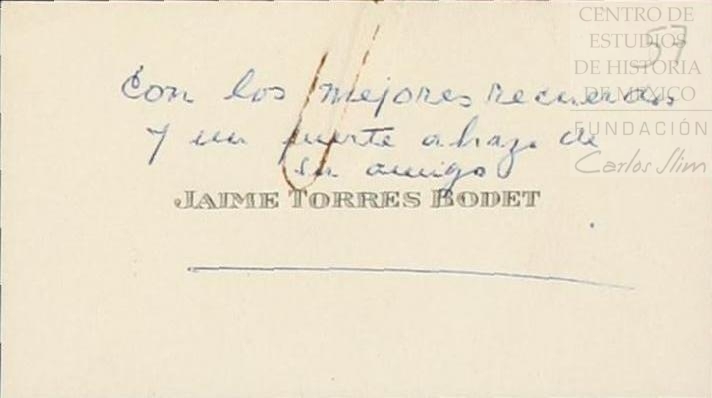 CENTRO DE
ESTUDIOS
DE HISTORIA
DE MÉXICO
FUNDACIÓN
Carlos Slim
57
Con los mejores recuerdos
y un fuerte abrazo de
su amigo
JAIME TORRES BODET